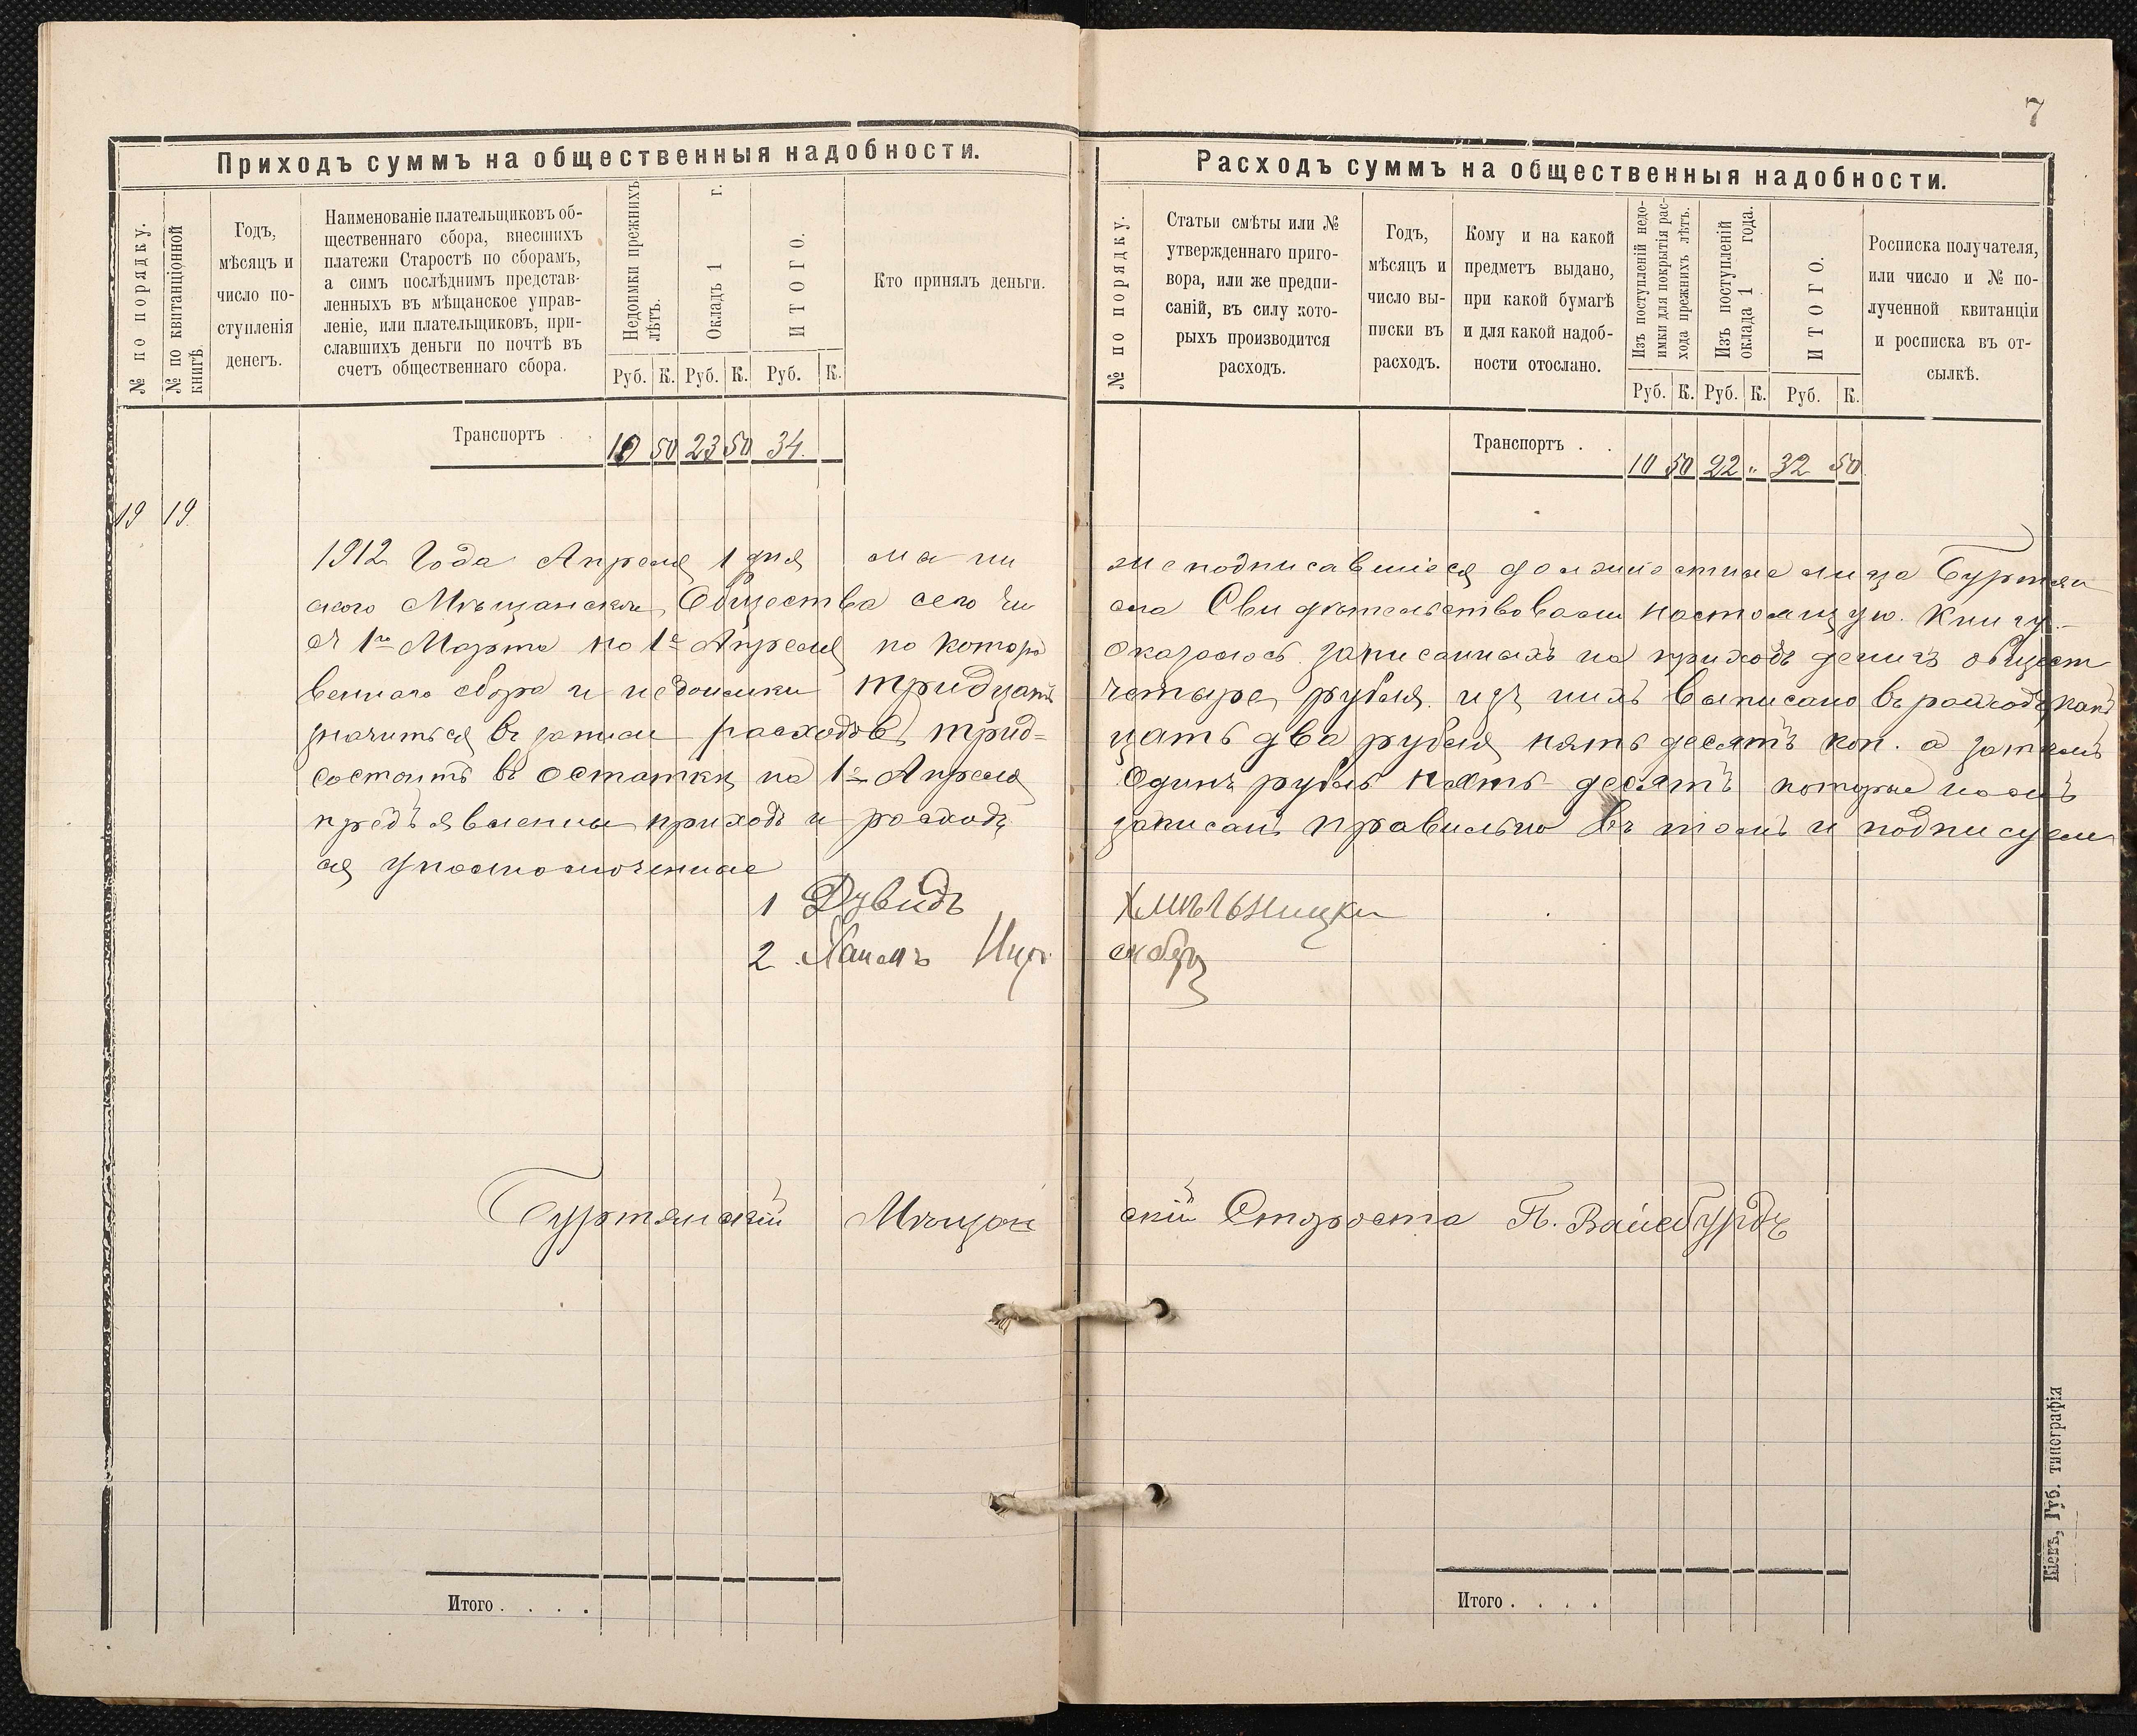 7
Приходъ суммъ на общественныя надобности.
№ по порядку.
№ по квитанціонной книгѣ.
Годъ,
мѣсяцъ и
число по-
ступленія
денегъ.
Наименованіе плательщиковъ об-
щественнаго сбора, внесшихъ
платежи Старостѣ по сборамъ,
а симъ послѣднимъ представ-
ленныхъ въ мѣщанское управ-
леніе, или плательщиковъ, при-
славшихъ деньги по почтѣ въ
счетъ общественнаго сбора.
Недоимки прежнихъ
лѣтъ.
Окладъ 1 г.
ИТОГО.
Руб. К. Руб. К. Руб. К.
Кто принялъ деньги.
Транспортъ . . 10 50 23 50 34
19 19
1912 Года Апреля 1 дня мы ни
ского Мѣщанского Общества сего чи
съ 1го Марта по 1е Апреля по которо
веннаго сбора и недоимки тридцать
значиться въ записи расходовъ трид=
состоитъ въ остатки на 1е Апреля
предъявленны приходъ и росходъ
ся уполномоченные
1 Дувидъ
2 Хаимъ
Буртянский Мѣщан
Итого . . . .
Расходъ суммъ на общественныя надобности.
№ по порядку.
Статьи смѣты или №
утвержденнаго приго-
вора, или же предпи-
саній, въ силу кото-
рыхъ производится
расходъ.
Годъ,
мѣсяцъ и
число вы-
писки въ
расходъ.
Кому и на какой
предметъ выдано,
при какой бумагѣ
и для какой надоб-
ности отослано.
Изъ поступленій недо-
имки для покрытія рас-
хода прежнихъ лѣтъ.
Изъ поступленій
оклада 1 года.
ИТОГО.
Руб. К. Руб. К. Руб. К.
Росписка получателя,
или число и № по-
лученной квитанціи
и росписка въ от-
сылкѣ.
Транспортъ . . 10 50 22 " 32 50
же подписавшіеся должностные лица Буртян
сла Свидѣтельствовали настоящую Книгу
Оказалось записанныхъ на приходъ денегъ общест
четыре рубля изъ нихъ выписано въ расходъ какъ
цать два рубля пять десятъ коп. а затемъ
Одинъ рубль пять десятъ которые
записанъ правильно въ томъ и подписуем
Хмѣльницки
ский Староста П. Вайсбурдъ
Итого . . . .
Кіевъ, Губ. типографія